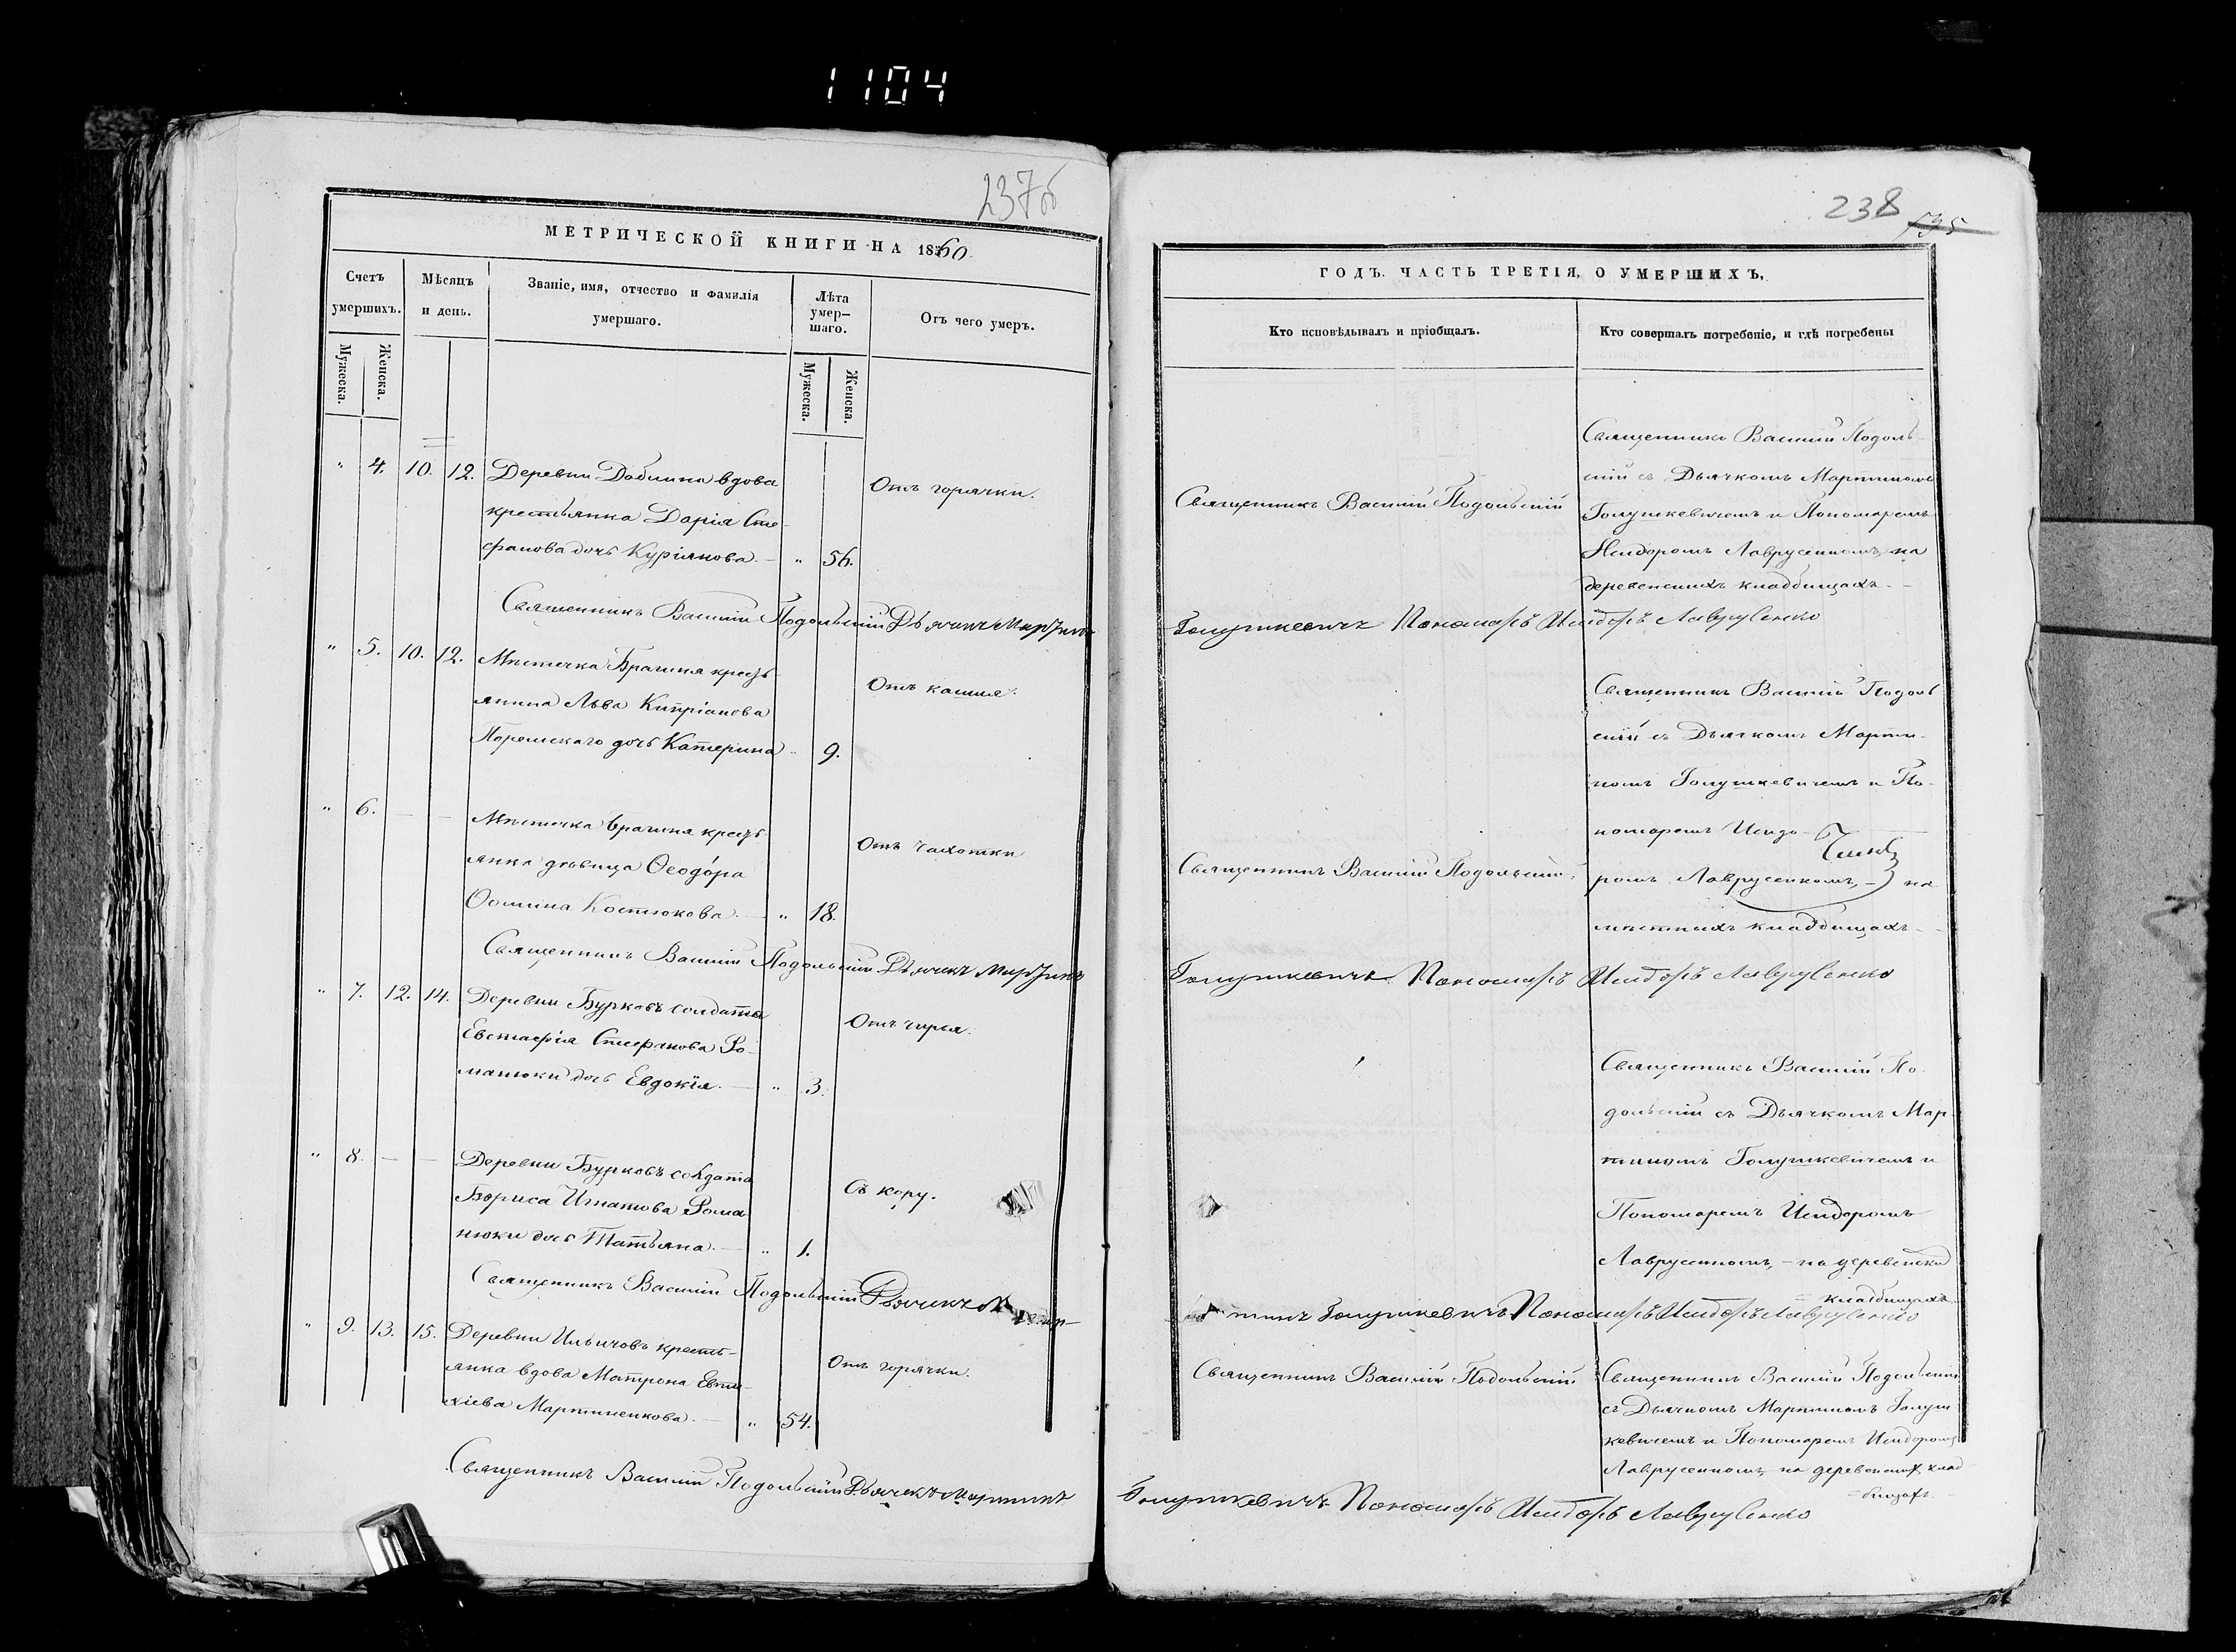 1104
237об
МЕТРИЧЕСКОЙ КНИГИ НА 1860.
Счетъ умершихъ.
Мѣсяцъ и день.
Званіе, имя, отчество и фамилія умершаго.
Лѣта умер-
шаго.
Отъ чего умеръ.
Мужеска.
Женска.
Мужеска.
Женска.
" 4. 10. 12. Деревни Доблина вдова
Отъ горячки.
крестьянка Дарія Сте-
фанова дочь Куріянова. — " 56.
Священникъ Василій Подольскій Дьячекъ Мартинъ
" 5. 10. 12. Мѣстечка Брагиня кресть
Отъ кашля.
янина Льва Кипріанова
дочь Катерина " 9.
" 6. — — Мѣстечка Брагиня кресть
Отъ чахотки
янка дѣвица Ѳеодора
Ѳомина Костюкова. — " 18.
Священникъ Василій Подольскій Дьячекъ Мартинъ
" 7. 12. 14. Деревни Бурковъ солдата
Отъ
Евстафія Стефанова Ро-
манюки дочь Евдокія. — " 3.
" 8. — — Деревни Бурковъ солдата
Съ кору.
Бориса Игнатова Рома
нюки дочь Татьяна. — " 1.
Священникъ Василій Подольскій Дьячекъ Мар-
" 9. 13. 15. Деревни Ильичовъ кресть-
Отъ горячки.
янка вдова Матрона Евти-
хіева Мартиненкова. — " 54.
Священникъ Василій Подольскій Дьячекъ Мартинъ
238
735
ГОДЪ. ЧАСТЬ ТРЕТІЯ, О УМЕРШИХЪ.
Кто исповѣдывалъ и пріобщалъ.
Кто совершалъ погребеніе, и гдѣ погребены
Священникъ Василій Подольскій
Священникъ Василій Подоль-
скій съ Дьячкомъ Мартиномъ
Голушкевичемъ и Пономаремъ
Исидоромъ Лаврусенкомъ, на
деревенскихъ кладбищахъ. —
Голушкевичъ Пономарь Исидоръ Лаврусенко
Священникъ Василій Подоль
скій съ Дьячкомъ Марти-
номъ Голушкевичемъ и По-
номаремъ Исидо-
Священникъ Василій Подольскій.
ромъ Лаврусенкомъ, — на
мѣстныхъ кладбищахъ. —
Голушкевичъ Пономарь Исидоръ Лаврусенко
Священникъ Василій По-
дольскій съ Дьячкомъ Мар-
тиномъ Голушкевичемъ и
Пономаремъ Исидоромъ
Лаврусенкомъ, — на деревенски
= кладбищахъ
тинъ Голушкевичъ Пономарь Исидоръ Лаврусенко
Священникъ Василій Подольскій
Священникъ Василій Подольскій
съ Дьячкомъ Мартиномъ Голуш
кевичемъ и Пономаремъ Исидоромъ
Лаврусенкомъ, на деревенских клад
= бищахъ. —
Голушкевичъ Пономарь Исидоръ Лаврусенко